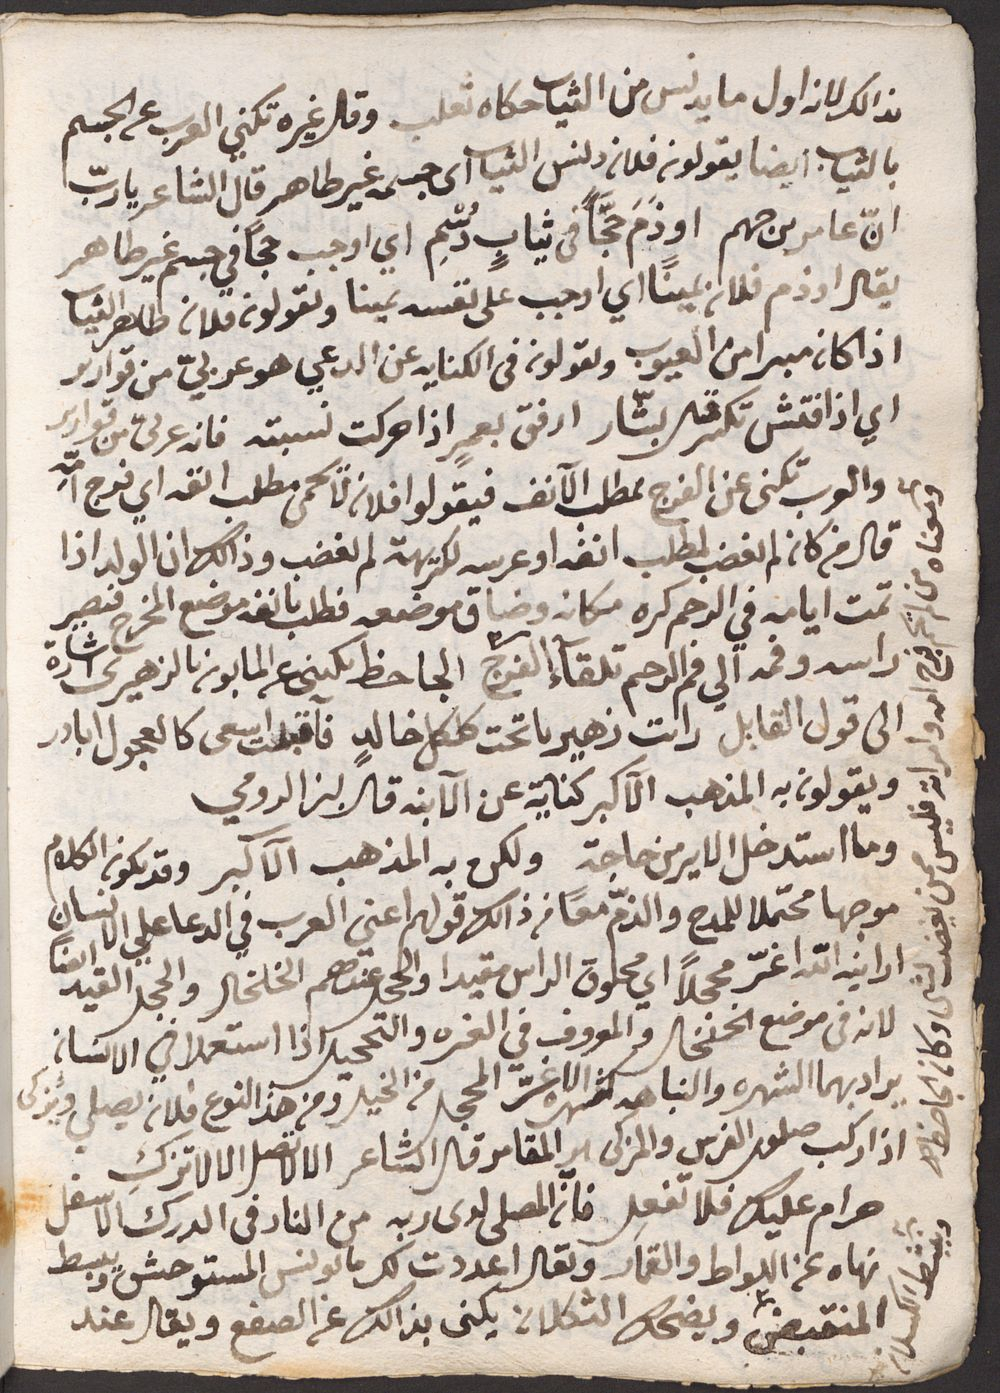 بذالك لانه اول ما يدنس من الثياب حكاه ثعلب وقال غيره تكني العرب عن الجسم
بالثياب ايضا يقولون فلان دنس الثياب اى جسمه غير طاهر قال الشاعر يا ربّ
انّ عامر بن جهم اوذَمَ حَجّاً في ثيابٍ دُسْمِ اي اوجب حجاً في جسم غير طاهر
يقال اوذم فلان يمينًا اي اوجب على نفسه يمينا ويقولون فلان طاهر الثياب
اذا كان مبرا من العيوب ويقولون فى الكنايه عن الدعي هو عربيّ من قوارير
اي اذا فتش تكسر قال بشّار ارفق بعمرٍ اذا حركت نسبته فانه عربيّ من قوارير
والعرب تكنى عن الفرج بمطلب الآنف فيقولوا فلان لا يحمى مطلب انفه اي فرج امّه
قال من كان لم يغضب لمطلب انفه او عرسه لكريهة لم يغضب وذالك ان الولد اذا
تمت ايامه في الرحم كره مكانه وضاق موضعه فطلب بانفه موضع المخرج فتصير
راسه وفمه الي فم الرحم تلقآء الفرج الجاحظ يكنى عن المابون بالزهيرى اشارة
الى قول القايل رايت زهيرا تحت كلكل خالدٍ فآقبلت اسعى كالعجول ابادر
ويقولون به المذهب الآكبر كناية عن الآبنه قال ابن الرومي
وما استدخل الاير من حاجة ولكن به المذهب الآكبر وقد يكون الكلام
موجها محتملا للمدح والذمّ معًا من ذالك قولهم اعني العرب في الدعا علي الانسان
ارانيه الله اغرّ محجلاً اي محلوق الراس مقيدا والحجل عندهم الخلخال والحجل القيد ايضا
لانه فى موضع الخلخال والمعروف في الغره والتحجيل اذا استعملا في الانسان
يراد بهما الشهره والنباهه كشهره الاغرّ المحجل من الخيل ومن هذ النوع فلان يصلي ويزكى
اذا ركب صلوى الفرس والمزكى المقامر قال الشاعر الا لا تصل الا لا تزكِ
حرام عليك فلا تفعل فآنّ المصلي لدى ربه من النار فى الدرك الاسفل
نهاه عن اللواط والقمار ويقال اعددت لك ما يونس المستوحش ويبسط
المنقبض ويضحك الثكلان يكنى بذالك عن الصفع ويقال عند
ومعناه من لم يحم فرج امه وامراته فليس ممن يغضب لشى وكان الجاحظ
وينشط الكسلان